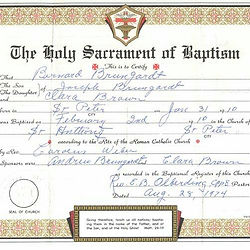 The Holy Sacrament of Baptism
This is to Certify
That Bernard Brungardt
The Son of Joseph Brungardt
The Daughter
Clara Brown
St Peter on Jan 31 1910
was Baptized on February 2nd 1910
St Anthony St Peter
according to the Rite of the Roman Catholic Church
Weber
Sponsors were Andrew Brungardt Clara Brown
as recorded in the Baptismal Register of this Church
Rev. Pastor
Date Aug 28, 1974
SEAL OF CHURCH
Going therefore, teach ye all nations; baptizing them in the name of the Father, and of the Son, and of the Holy Ghost.